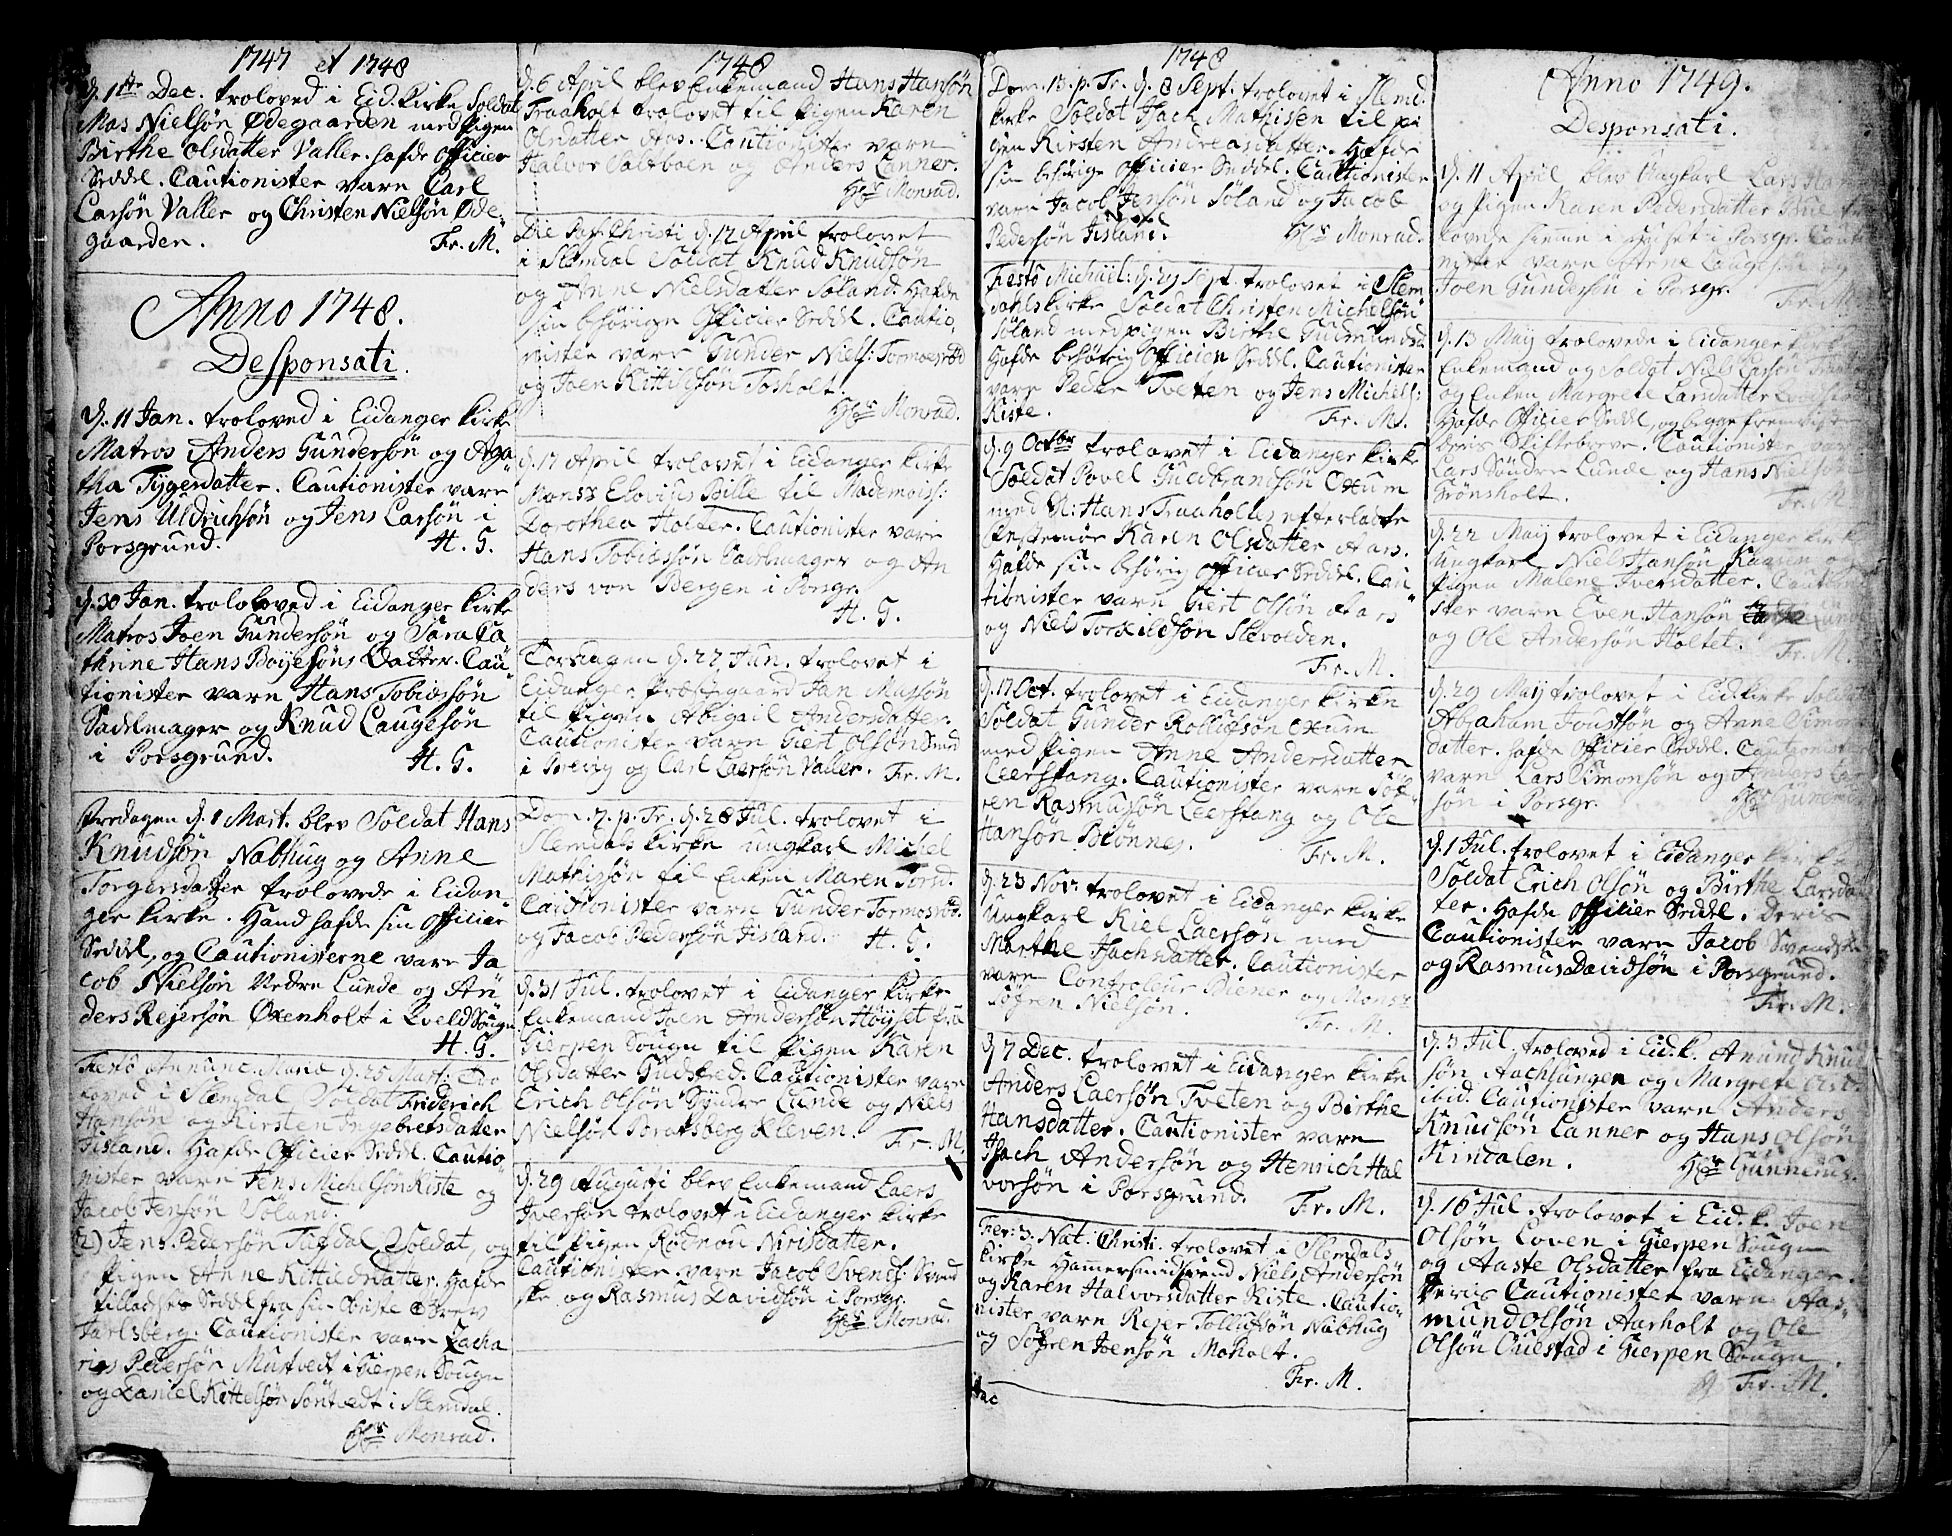 1747 et 1748
d. 1te Dec. troloved i Eid. kirke Soldat
Mas Nielsøn Ødegaarden med pigen
Birthe Olsdatter Valler. hafde Officier
Seddel. Cautionister vare Carl
Larsøn Valler og Christen Nielsøn Øde-
gaarden. Fr. M.
Anno 1748.
Desponsati.
d. 11 Jan. troloved i Eidanger kirke
Matros Anders Gundersøn og Aga-
tha Tygersdatter. Cautionister vare
Jens Uldrichsøn og Jens Larsøn i
Porsgrund. H. G.
d. 30 Jan. troloved i Eidanger kirke
Matros Joen Gundersøn og Sara Ca
thrine Hans Boyesøns Datter. Cau-
tionister vare Hans Tobiassøn
Sadelmager og Knud Laugesøn
i Porsgrund. H. G.
Fredagen d. 1 Mart. blev Soldat Hans
Knudsøn Nabhug og Anne
Torgersdatter trolovede i Eidan-
ger kirke. Hand hafde sin Officier
Seddel, og Cautionisterne vare Ja
cob Nielsøn Nedre Lunde og An
ders Rejersøn Oxenholt i Sougn.
H. G.
Festo Annunc. Mariæ d. 25 Mart: tro
loved i Slemdal Soldat Friderich
Hansøn og Kirsten Ingebretsdatter
Fisland. Hafde Officier Seddel. Cautio
nister vare Jens Michelsøn Kiste og
Jacob Jensøn Søland.
2) Jens Pedersøn Tufdal Soldat, og
Pigen Anne Kittilsdatter. Hafde
tilladelse Seddel fra sin
Jarlsberg. Cautionister vare Zacha
rias Pedersøn Mustvedt i Gierpen Sougn
og Daniel Kittelsøn Søntvedt i Slemdal.
Hr Monrad.
1748
d. 6 April blev Enkemand Hans Hansøn
Traaholt trolovet til Pigen Karen
Olsdatter Aas. Cautionister vare
Halvor Saltboen og Anders Lanner.
Hr Monrad.
Die Pas. Christi d. 12 April trolovet
i Slemdal Soldat Knud Knudsøn
og Anne Nielsdatter Søland. Hafde
sin behørige Officier Seddel. Cautio-
nister vare Gunder Niels: Tormoesrød
og Joen Kittilsøn Tosholt.
Hr Monrad.
d. 17 April trolovet i Eidanger kirke
Monsr Elovius Bille til Mademoiss:
Dorothea Holder. Cautionister vare
Hans Tobiassøn Sadelmager og An
ders von Bergen i Porsgr.
H. G.
Torsdagen d. 27 Jun. trolovet i
Eidanger Præstegaard Jan Massøn
til Pigen Abigail Andersdatter.
Cautionister vare Giert Olsøn Smed
i Brevig og Carl Laersøn Valler. Fr. M.
Dom. 7. p. Tr. d. 28 Jul. trolovet i
Slemdals kirke ungkarl Michel
Mathissøn til Enken Maren Torsd.
Cautionister vare Gunder Tormosrød.
og Jacob Pedersøn Fisland. H. G.
d. 31 Jul. trolovet i Eidanger kirke
Enkemand Joen Andersøn Høyset fra
Gierpen Sougn til Pigen Karen
Olsdatter Gudsted. Cautionister vare
Erich Olsøn Syndre Lunde og Niels
Nielsøn Bratsberg Kleven. Fr. M.
d. 29 Augusti blev Enkemand Laers
Iversøn trolovet i Eidanger kirke
til Pigen Rødnou Nirisdatter.
Cautionister vare Jacob Svends: Svend
ske og Rasmus Davidsøn i Porsgr.
Hr Monrad.
1748
Dom. 13. p. Tr. d. 8 Sept. trolovet i Slemd.
kirke Soldat Isach Mathisen til pi
gen Kirsten Andreasdatter. Hafde
sin behørige Officier Seddel. Cautionister
vare Jacob Jensøn Søland og Jacob
Pedersøn Fisland. Hr Monrad.
Festo Michael: d. 29 Sept. trolovet i Slem
dahls kirke Soldat Christen Michelsøn
Søland med pigen Birthe Gudmundsd.
Hafde behørig Officier Seddel. Cautionister
vare Peder Tveten og Jens Michels:
Kiste. Fr. M.
d. 9 Octbr trolovet i Eidanger kirke
Soldat Povel Guldbrandsøn Oxum
med Sl: Hans Traaholtes efterladte
Festemøe Karen Olsdatter Aas.
Hafde sin behørig Officier Seddel. Cau-
tionister vare Giert Olsøn Aas
og Niels Torkildsøn Slevolden.
Fr. M.
d. 17 Oct. trolovet i Eidanger kirke
Soldat Gunder Rollufsøn Oxum
med Pigen Anne Andersdatter
Leerstang. Cautionister vare Søf-
ren Rasmussøn Leerstang og Ole
Hansøn Biønnes. Fr. M.
d. 23 Nov: trolovet i Eidanger kirke
Ungkarl Kiel Laersøn med
Marthe Isachsdatter. Cautionister
vare Controleur Diener og Monsr
Søfren Nielsøn. Fr. M.
d. 7 Dec. trolovet i Eidanger kirke
Anders Laersøn Tveten og Birthe
Hansdatter. Cautionister vare
Isach Andersøn og Henrich Hal
vorsøn i Porsgrund. Fr. M.
Fer: 3. Nat: Christi. trolovet i Slemdals
kirke Hammersmidsvend Niels Andersøn
og Karen Halvorsdatter Kiste. Cautio-
nister vare Rejer Tollufsøn Nabhug
og Søfren Joensøn Moholt.
Fr. M.
Anno 1749.
Desponsati.
d. 11 April blev Ungkarl Lars
og Pigen Karen Pedersdatter
lovede hiemme i huset i Porsgr. Cautio
nister vare Arne
Joen Gundersøn i Porsgr.
Fr. M.
d. 13 Maij trolovede i Eidanger kirke
Enkemand og Soldat Niels Larsøn
og Enken Margrete Larsdatter
Hafde Officier Seddel, og begge fremviiste
deris Skiftebreve. Cautionister vare
Lars Søndre Lunde og Hans Nielsøn
Grønsholt. Fr. M.
d. 22 Maij trolovet i Eidanger kirke
ungkarl Niels Hansøn Kaasen og
Pigen Malene Iversdatter. Cautioni
ster vare Even Hansøn Lunde
og Ole Andersøn Holtet. Fr. M.
d. 29 Maij trolovet i Eid. kirke Soldat
Abraham Joustsøn og Anne Simons
datter. hafde Officier Seddel. Cautionister
vare Lars Simonsøn og Anders Lar
søn i Porsgr. Hr Gunnerus
d. 1 Jul. trolovet i Eidanger kirke
Soldat Erich Olsøn og Birthe Larsdat
ter. Hafde Officier Seddel. Deris
Cautionister vare Jacob Svendske
og Rasmus Davidsøn i Porsgrund.
Fr. M.
d. 3 Jul. troloved i Eid. k. Amund Knud
søn Aachlungen og Margrete
ibid. Cautionister vare Anders
Knudsøn Lanner og Hans Olsøn
Kirdalen. Hr Gunnerus.
d. 16 Jul. trolovet i Eid. k. Joen
Olsøn Loven i Gierpen Sougn
og Aaste Olsdatter fra Eidanger.
Deris Cautionister vare Aas-
mund Olsøn Aarholt og Ole
Olsøn Ouestad i Gierpen Sougn.
Fr. M.